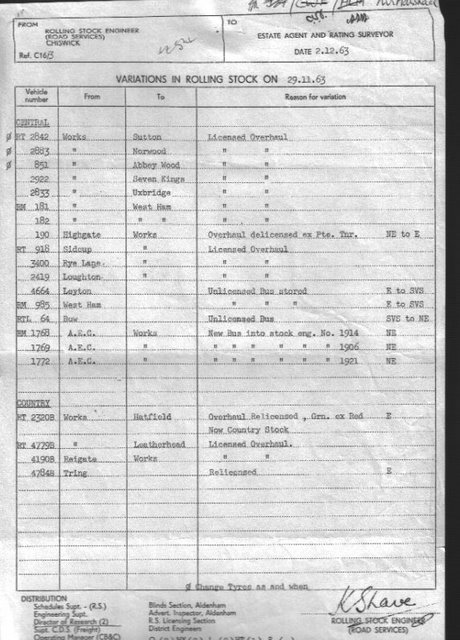 FROM
ROLLING STOCK ENGINEER
(ROAD SERVICES)
CHISWICK
Ref. C16/3
TO
ESTATE AGENT AND RATING SURVEYOR
DATE 2.12.63
VARIATIONS IN ROLLING STOCK ON 29.11.63
Vehicle number From To Reason for variation
CENTRAL
Ø RT 2842 Works Sutton Licensed Overhaul
Ø 2883 " Norwood " "
Ø 851 " Abbey Wood " "
2922 " Seven Kings " "
2833 " Uxbridge " "
RM 181 " West Ham " "
182 " " " " "
190 Highgate Works Overhaul delicensed ex Pte. Thr. NE to E
RT 918 Sidcup " Licensed Overhaul
3400 Rye Lane " " "
2419 Loughton " " "
4664 Leyton Unlicensed Bus stored E to SVS
RM 985 West Ham " " " E to SVS
RTL 64 Bow Unlicensed Bus SVS to NE
RM 1768 A.E.C. Works New Bus into stock eng. No. 1914 NE
1769 A.E.C. " " " " " " " 1906 NE
1772 A.E.C. " " " " " " " 1921 NE
COUNTRY
RT 2320B Works Hatfield Overhaul Relicensed , Grn. ex Red E
Now Country Stock
RT 4779B " Leatherhead Licensed Overhaul.
4190B Reigate Works " "
4784B Tring Relicensed E
Ø Change Tyres as and when
DISTRIBUTION
Schedules Supt. - (R.S.)
Engineering Supt.
Director of Research (2)
Supt. C.D.S. (Freight)
Operating Manager (CB&C)
Blinds Section, Aldenham
Advert. Inspector, Aldenham
R.S. Licensing Section
District Engineers
K Shave
ROLLING STOCK ENGINEER
(ROAD SERVICES)